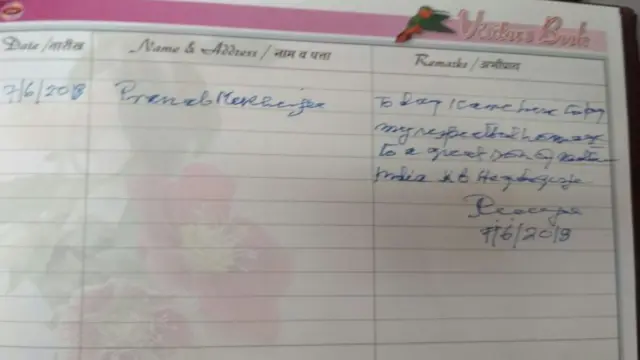 Visitors Book
Date / तारीख
Name & Address / नाम व पत्ता
Remarks / अभीप्राय
7/6/2018
Pranab Mukherjee
Today I came here to pay
my respect and homage
to a great son of Mother
India Dr K B Hedgewar.
Pranab
7/6/2018